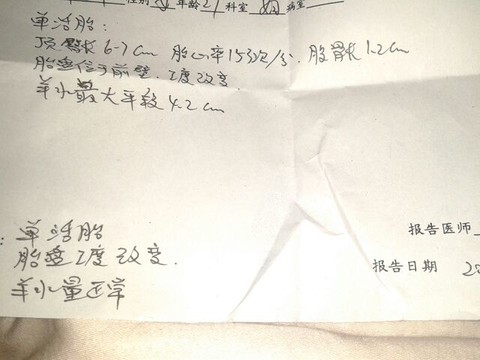 性别 女 年龄21 科室 妇 病室
单活胎：
顶臀长6-7cm 胎心率153次/分. 股骨长1.2cm
胎盘位于前壁. I度改变.
羊水最大平段4.2cm
报告医师
单活胎
胎盘I度改变.
报告日期 20
羊水量正常